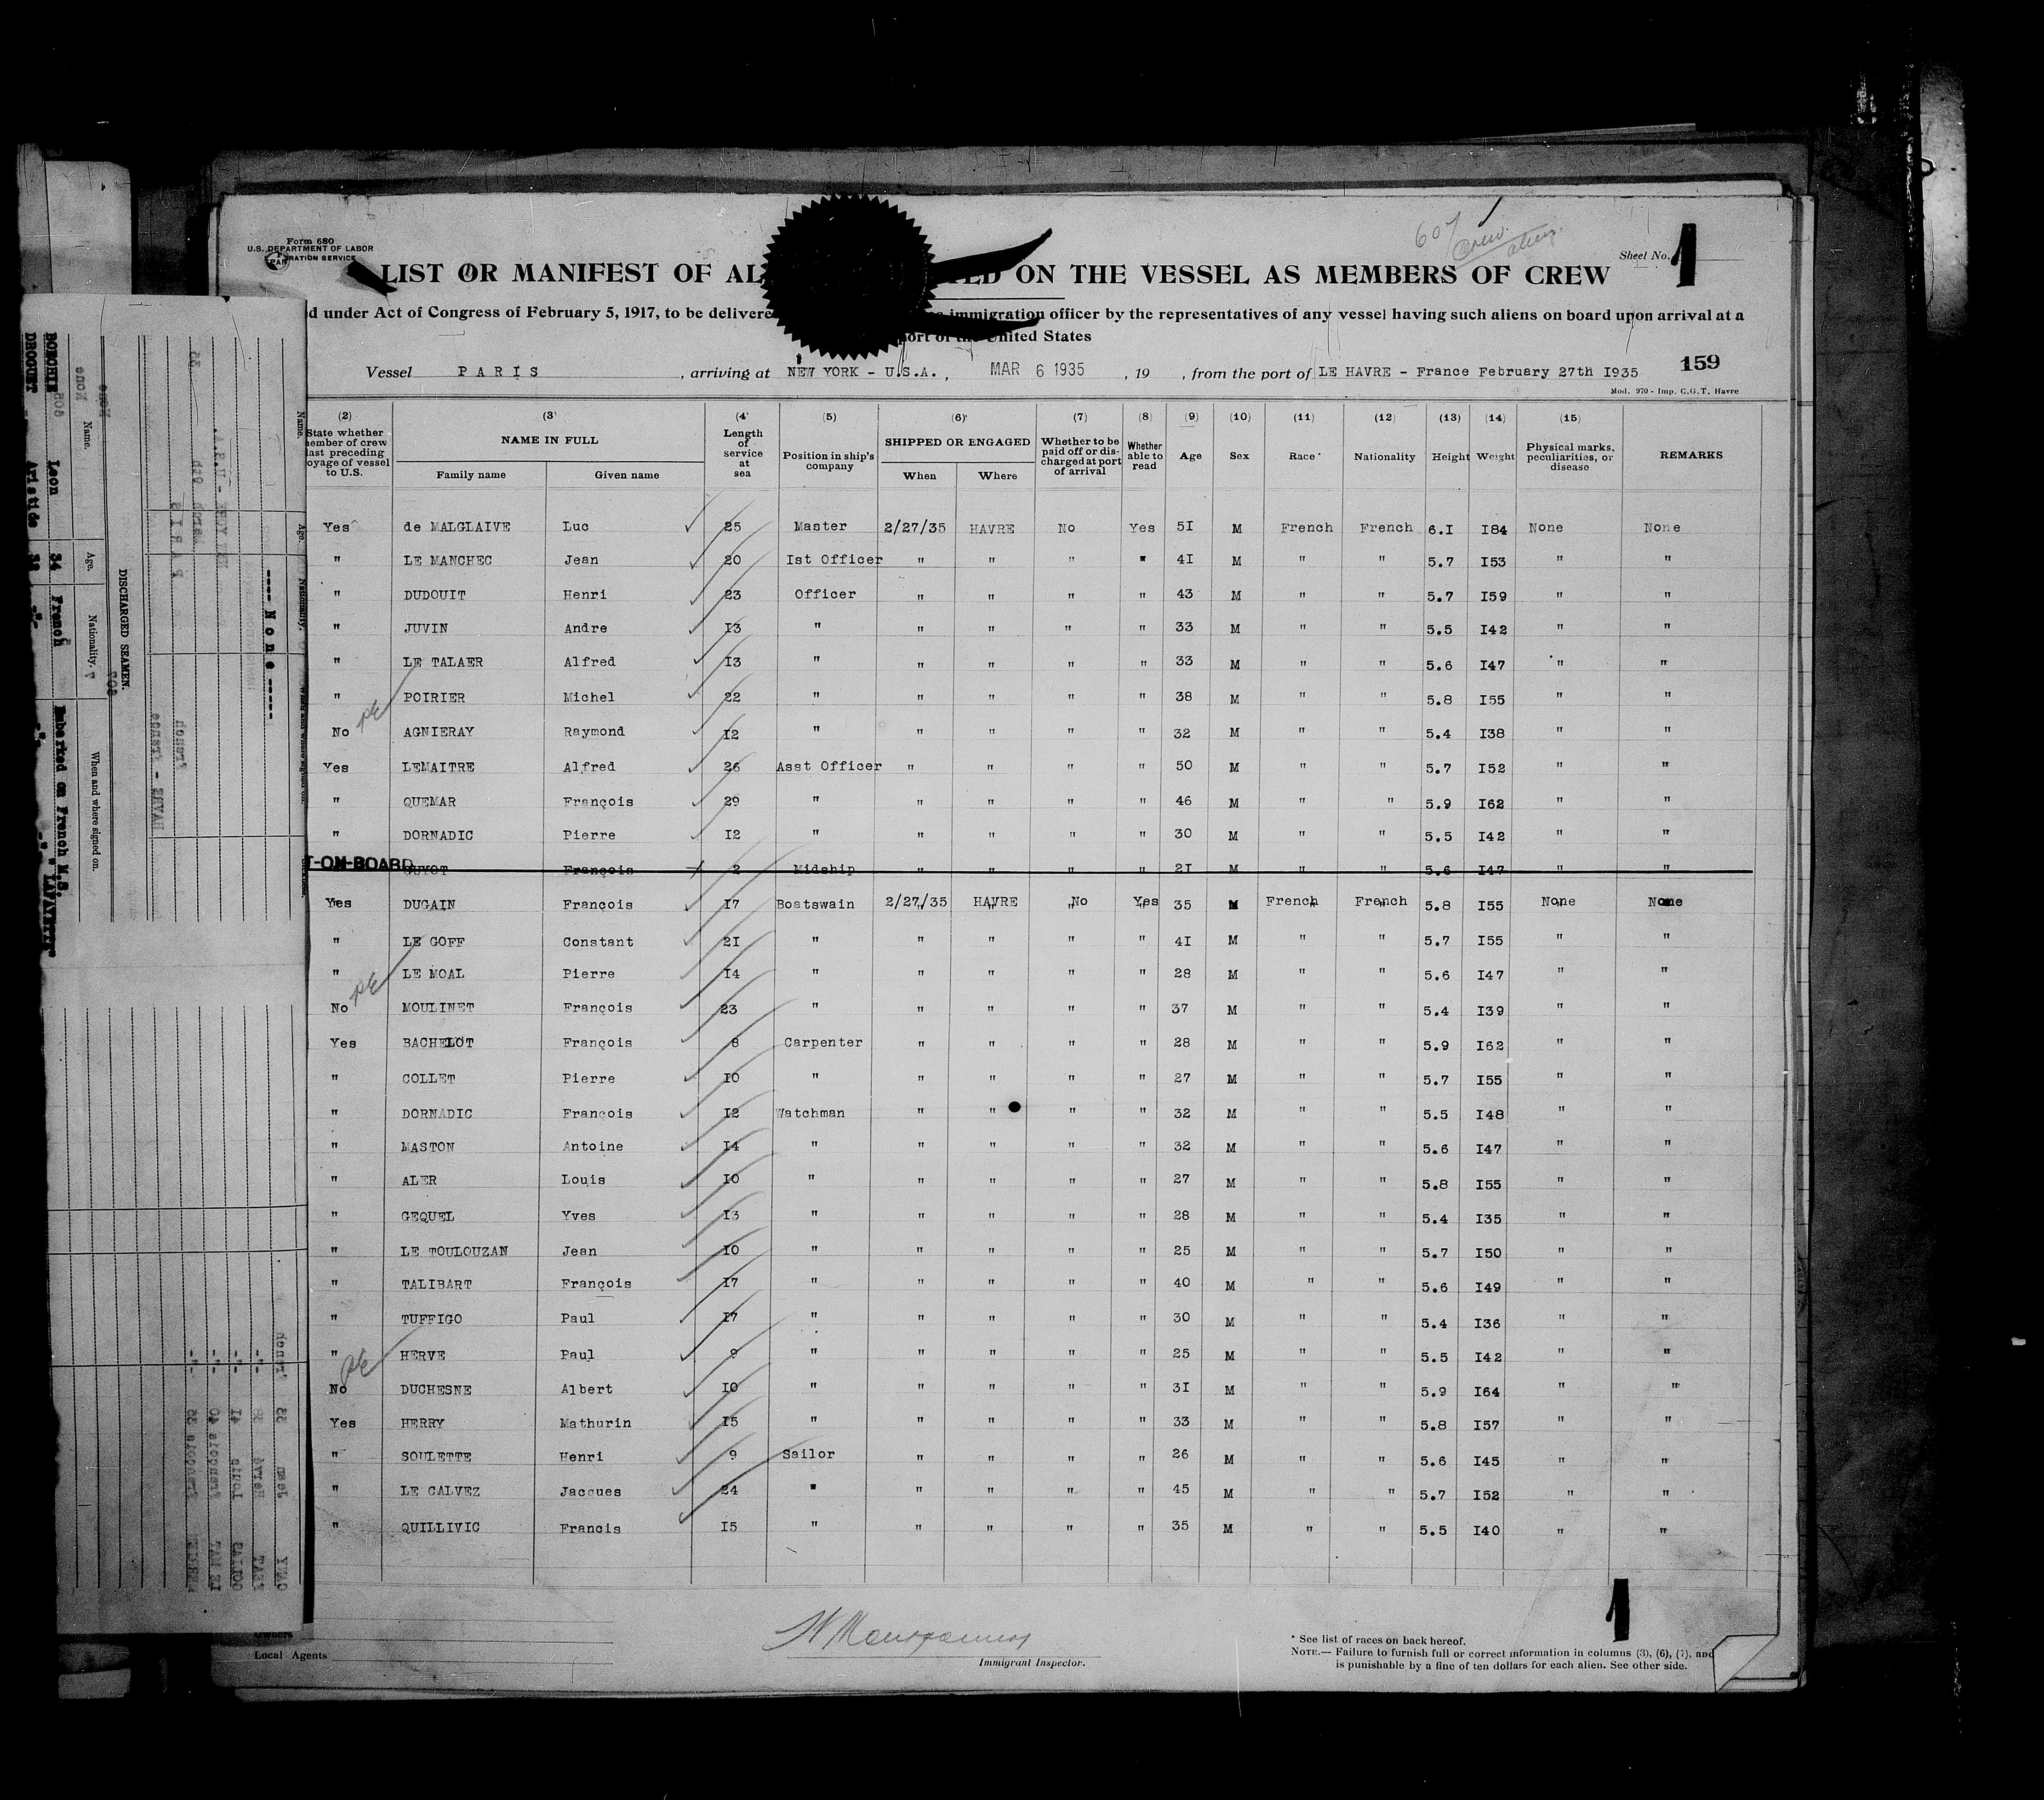 Form 680
U.S. DEPARTMENT OF LABOR
RATION SERVICE
607 Crew.
aliens.
Sheet No. 1
LIST OR MANIFEST OF AL ED ON THE VESSEL AS MEMBERS OF CREW
d under Act of Congress of February 5, 1917, to be delivere immigration officer by the representatives of any vessel having such aliens on board upon arrival at a
port of the United States
Vessel PARIS , arriving at NEW YORK - U.S.A. , MAR 6 1935 , 19 , from the port of LE HAVRE - France February 27th I935
159
Mod. 970 - Imp. C.G.T. Havre
(2) (3) (4) (5) (6) (7) (8) (9) (10) (11) (12) (13) (14) (15)
State whether member of crew last preceding voyage of vessel to U.S. NAME IN FULL Length of service at sea Position in ship's company SHIPPED OR ENGAGED Whether to be paid off or discharged at port of arrival Whether able to read Age Sex Race* Nationality Height Weight Physical marks, peculiarities, or disease REMARKS
Family name Given name When Where
Yes de MALGLAIVE Luc 25 Master 2/27/35 HAVRE No Yes 5I M French French 6.I I84 None None
" LE MANCHEC Jean 20 Ist Officer " " " " 4I M " " 5.7 I53 " "
" DUDOUIT Henri 23 Officer " " " " 43 M " " 5.7 I59 " "
" JUVIN Andre I3 " " " " " 33 M " " 5.5 I42 " "
" LE TALAER Alfred I3 " " " " " 33 M " " 5.6 I47 " "
" POIRIER Michel 22 " " " " " 38 M " " 5.8 I55 " "
No AGNIERAY Raymond I2 " " " " " 32 M " " 5.4 I38 " "
Yes LEMAITRE Alfred 26 Asst Officer " " " " 50 M " " 5.7 I52 " "
" QUEMAR François 29 " " " " " 46 M " " 5.9 I62 " "
" DORNADIC Pierre I2 " " " " " 30 M " " 5.5 I42 " "
T-ON-BOARD GUYOT François 2 Midship " " " " 2I M " " 5.6 I47 " "
Yes DUGAIN François I7 Boatswain 2/27/35 HAVRE No Yes 35 M French French 5.8 I55 None None
" LE GOFF Constant 2I " " " " " 4I M " " 5.7 I55 " "
" LE MOAL Pierre I4 " " " " " 28 M " " 5.6 I47 " "
No MOULINET François 23 " " " " " 37 M " " 5.4 I39 " "
Yes BACHELOT François 8 Carpenter " " " " 28 M " " 5.9 I62 " "
" COLLET Pierre IO " " " " " 27 M " " 5.7 I55 " "
" DORNADIC François I2 Watchman " " " " 32 M " " 5.5 I48 " "
" MASTON Antoine I4 " " " " " 32 M " " 5.6 I47 " "
" ALER Louis IO " " " " " 27 M " " 5.8 I55 " "
" GEQUEL Yves I3 " " " " " 28 M " " 5.4 I35 " "
" LE TOULOUZAN Jean IO " " " " " 25 M " " 5.7 I50 " "
" TALIBART François I7 " " " " " 40 M " " 5.6 I49 " "
" TUFFIGO Paul I7 " " " " " 30 M " " 5.4 I36 " "
" HERVE Paul 9 " " " " " 25 M " " 5.5 I42 " "
No DUCHESNE Albert IO " " " " " 3I M " " 5.9 I64 " "
Yes HERRY Mathurin I5 " " " " " 33 M " " 5.8 I57 " "
" SOULETTE Henri 9 Sailor " " " " 26 M " " 5.6 I45 " "
" LE CALVEZ Jacques 24 " " " " " 45 M " " 5.7 I52 " "
" QUILLIVIC Francis I5 " " " " " 35 M " " 5.5 I40 " "
Owners
Local Agents
Immigrant Inspector.
1
* See list of races on back hereof.
NOTE.— Failure to furnish full or correct information in columns (3), (6), (7), and
is punishable by a fine of ten dollars for each alien. See other side.
DISCHARGED SEAMEN.
Name. Age. Nationality. When and where signed on.
Leon 34 French Embarked on French M.S.
DROQUET Aristide
---- None -----